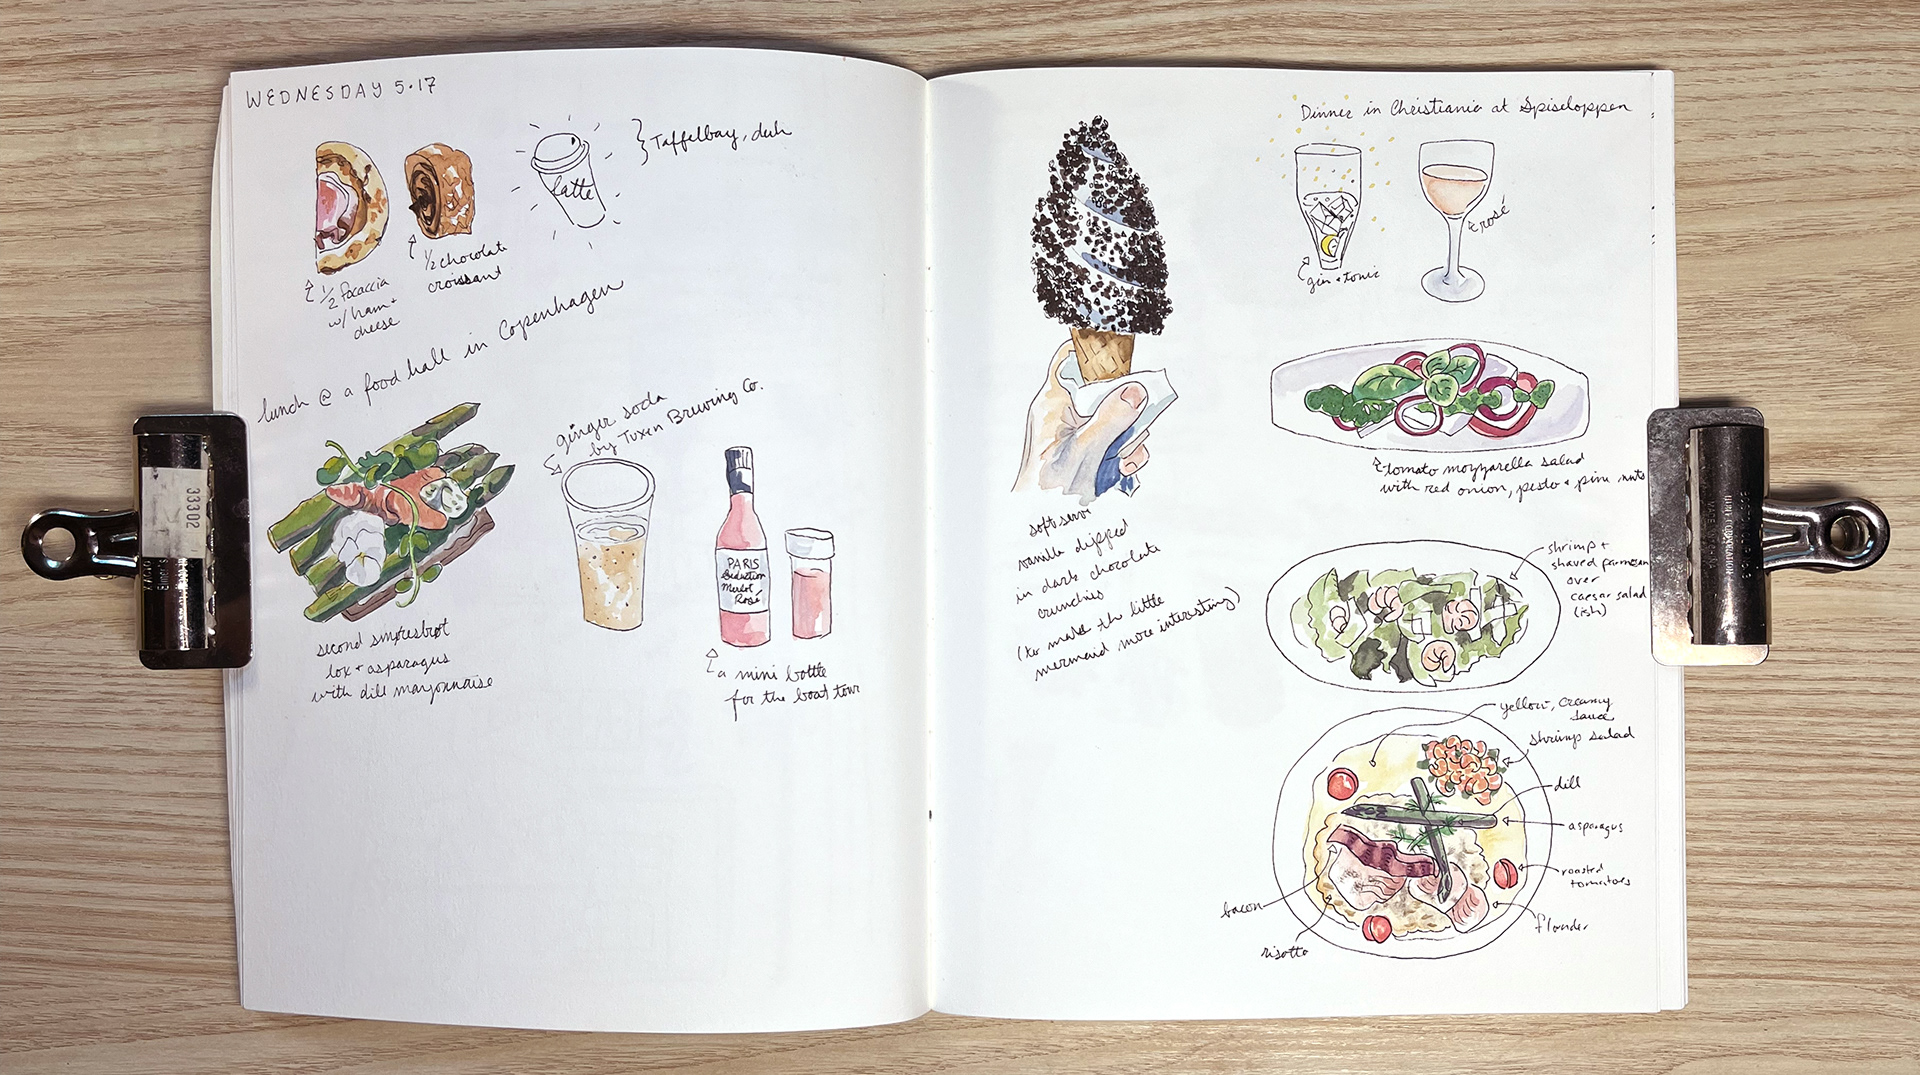 WEDNESDAY 5.17
} Taffelbay, duh
latte
1/2 focaccia
w/ ham +
cheese
1/2 chocolate
croissant
lunch @ a food hall in Copenhagen
ginger soda
by Tuxen Brewing Co.
PARIS
Seduction
Merlot
Rosé
second smørrebrøt
lox + asparagus
with dill mayonnaise
a mini bottle
for the boat tour
soft serve
vanilla dipped
in dark chocolate
crunchies
(to make the little
mermaid more interesting)
Dinner in Christiania at Spiseloppen
gin + tonic
rosé
tomato mozzarella salad
with red onion, pesto + pine nuts
shrimp +
shaved parmesan
over
caesar salad
(ish)
yellow, creamy
sauce
shrimp salad
dill
asparagus
roasted
tomatoes
flounder
bacon
risotto
33302